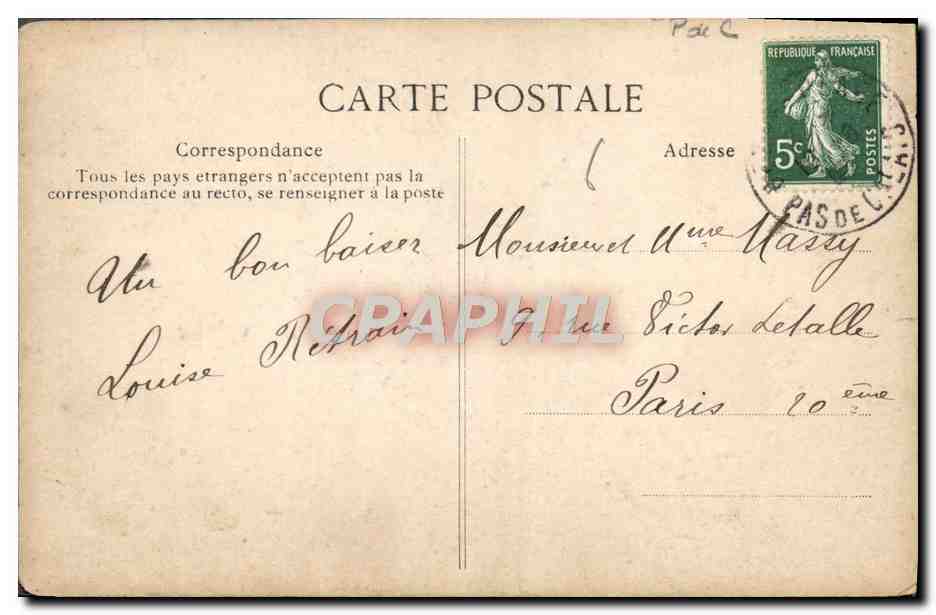 P de C
CARTE POSTALE
REPUBLIQUE FRANÇAISE
5c
POSTES
PAS DE CALAIS
Correspondance
Tous les pays etrangers n'acceptent pas la
correspondance au recto, se renseigner à la poste
Adresse
6
Un bon baiser
Louise Rétrain
Monsieur et Mme Massy
9 rue Victor Letalle
Paris 20ème
CPAPHIL